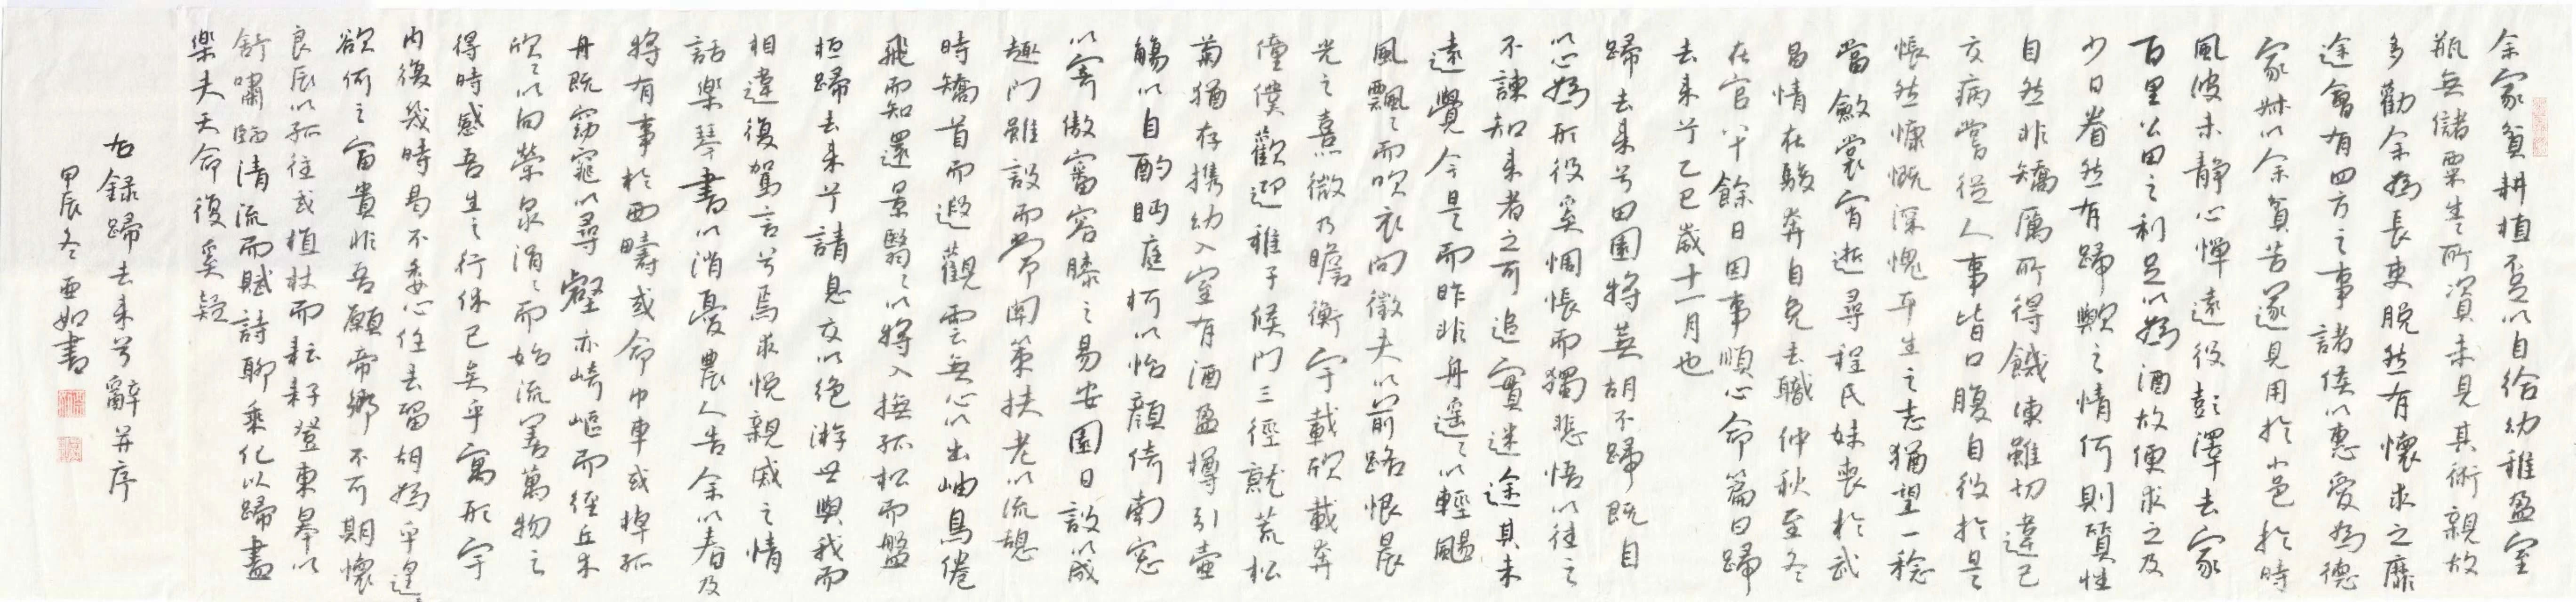 余家貧耕植不足以自給幼稚盈室
瓶無儲粟生〻所資未見其術親故
多勸余為長吏脫然有懷求之靡
途會有四方之事諸侯以惠愛為德
家叔以余貧苦遂見用於小邑於時
風波未靜心憚遠役彭澤去家
百里公田之利足以為酒故便求之及
少日眷然有歸歟之情何則質性
自然非矯厲所得饑凍雖切違己
交病嘗從人事皆口腹自役於是
悵然慷慨深愧平生之志猶望一稔
當斂裳宵逝尋程氏妹喪於武
昌情在駿奔自免去職仲秋至冬
在官八十餘日因事順心命篇曰歸
去來兮乙巳歲十一月也
歸去來兮田園將蕪胡不歸既自
以心為形役奚惆悵而獨悲悟以往之
不諫知來者之可追實迷途其未
遠覺今是而昨非舟遙〻以輕颺
風飄〻而吹衣問徵夫以前路恨晨
光之熹微乃瞻衡宇載欣載奔
僮僕歡迎稚子候門三徑就荒松
菊猶存攜幼入室有酒盈樽引壺
觴以自酌眄庭柯以怡顏倚南窗
以寄傲審容膝之易安園日設以成
趣門雖設而常關策扶老以流憩
時矯首而遐觀雲無心以出岫鳥倦
飛而知還景翳〻以將入撫孤松而盤
桓歸去來兮請息交以絕游世與我而
相違復駕言兮焉求悅親戚之情
話樂琴書以消憂農人告余以春及
將有事於西疇或命巾車或棹孤
舟既窈窕以尋壑亦崎嶇而經丘木
欣〻以向榮泉涓〻而始流善萬物之
得時感吾生之行休已矣乎寓形宇
內復幾時曷不委心任去留胡為乎遑〻
欲何之富貴非吾願帝鄉不可期懷
良辰以孤往或植杖而耘耔登東皋以
舒嘯臨清流而賦詩聊乘化以歸盡
樂夫天命復奚疑
右錄歸去來兮辭并序
甲辰冬亞如書